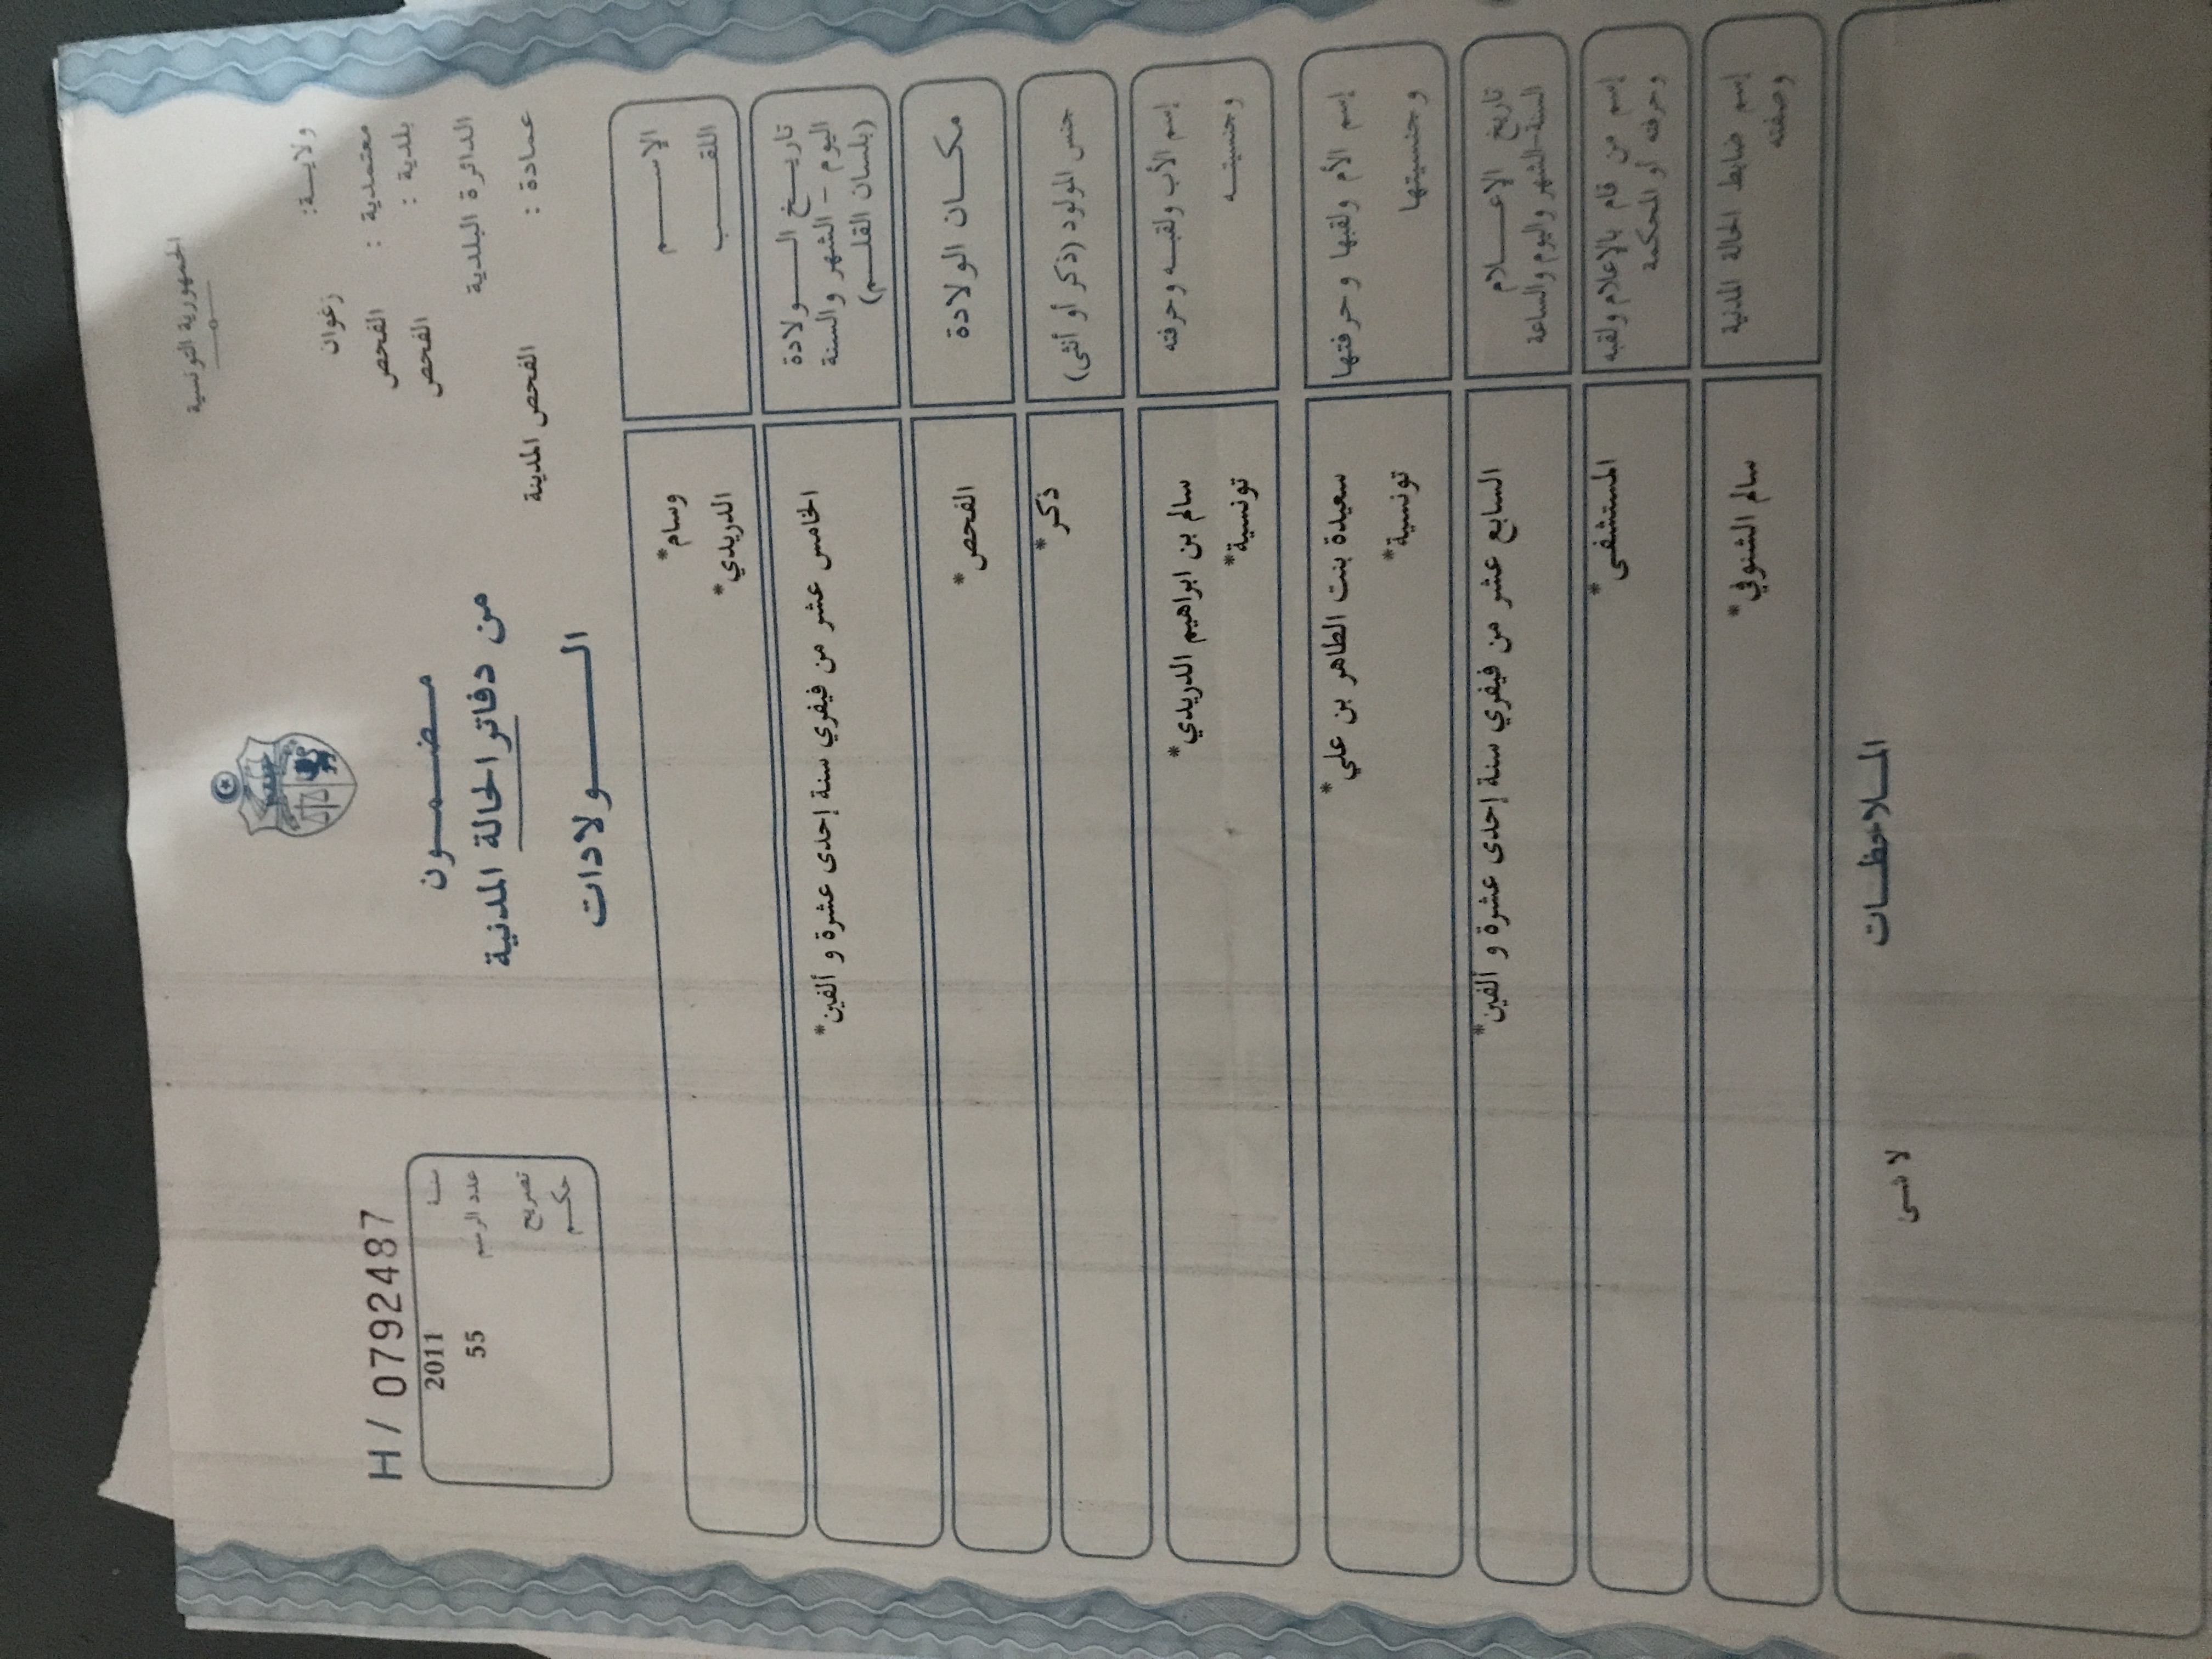 الجمهورية التونسية
ولايـــة: زغوان
معتمدية : الفحص
بلدية : الفحص
الدائرة البلدية
عمادة : الفحص المدينة
H / 0792487
سنة 2011
عدد الرسم 55
تصريح
حكم
مـــضـــمـــون
من دفاتر الحالة المدنية
الـــــولادات
الإســـــم *وسام
اللقـــــب *الدريدي
تاريـــخ الـــــولادة
اليوم - الشهر والسنة
(بلسان القلـــم)
*الخامس عشر من فيفري سنة إحدى عشرة و ألفين
مكـــان الولادة *الفحص
جنس المولود (ذكر أو أنثى) *ذكر
إسم الأب ولقبـــه وحرفته *سالم بن ابراهيم الدريدي
وجنسيتـــه *تونسية
إسم الأم ولقبها وحرفتها *سعيدة بنت الطاهر بن علي
وجنسيتها *تونسية
تاريخ الإعـــــلام
السنة-الشهر واليوم والساعة
*السابع عشر من فيفري سنة إحدى عشرة و ألفين
إسم من قام بالإعلام ولقبه
وحرفته أو المحكمة
*المستشفى
إسم ضابط الحالة المدنية
وصفته
*سالم الشنوفي
الملاحظـــات
لا شئ